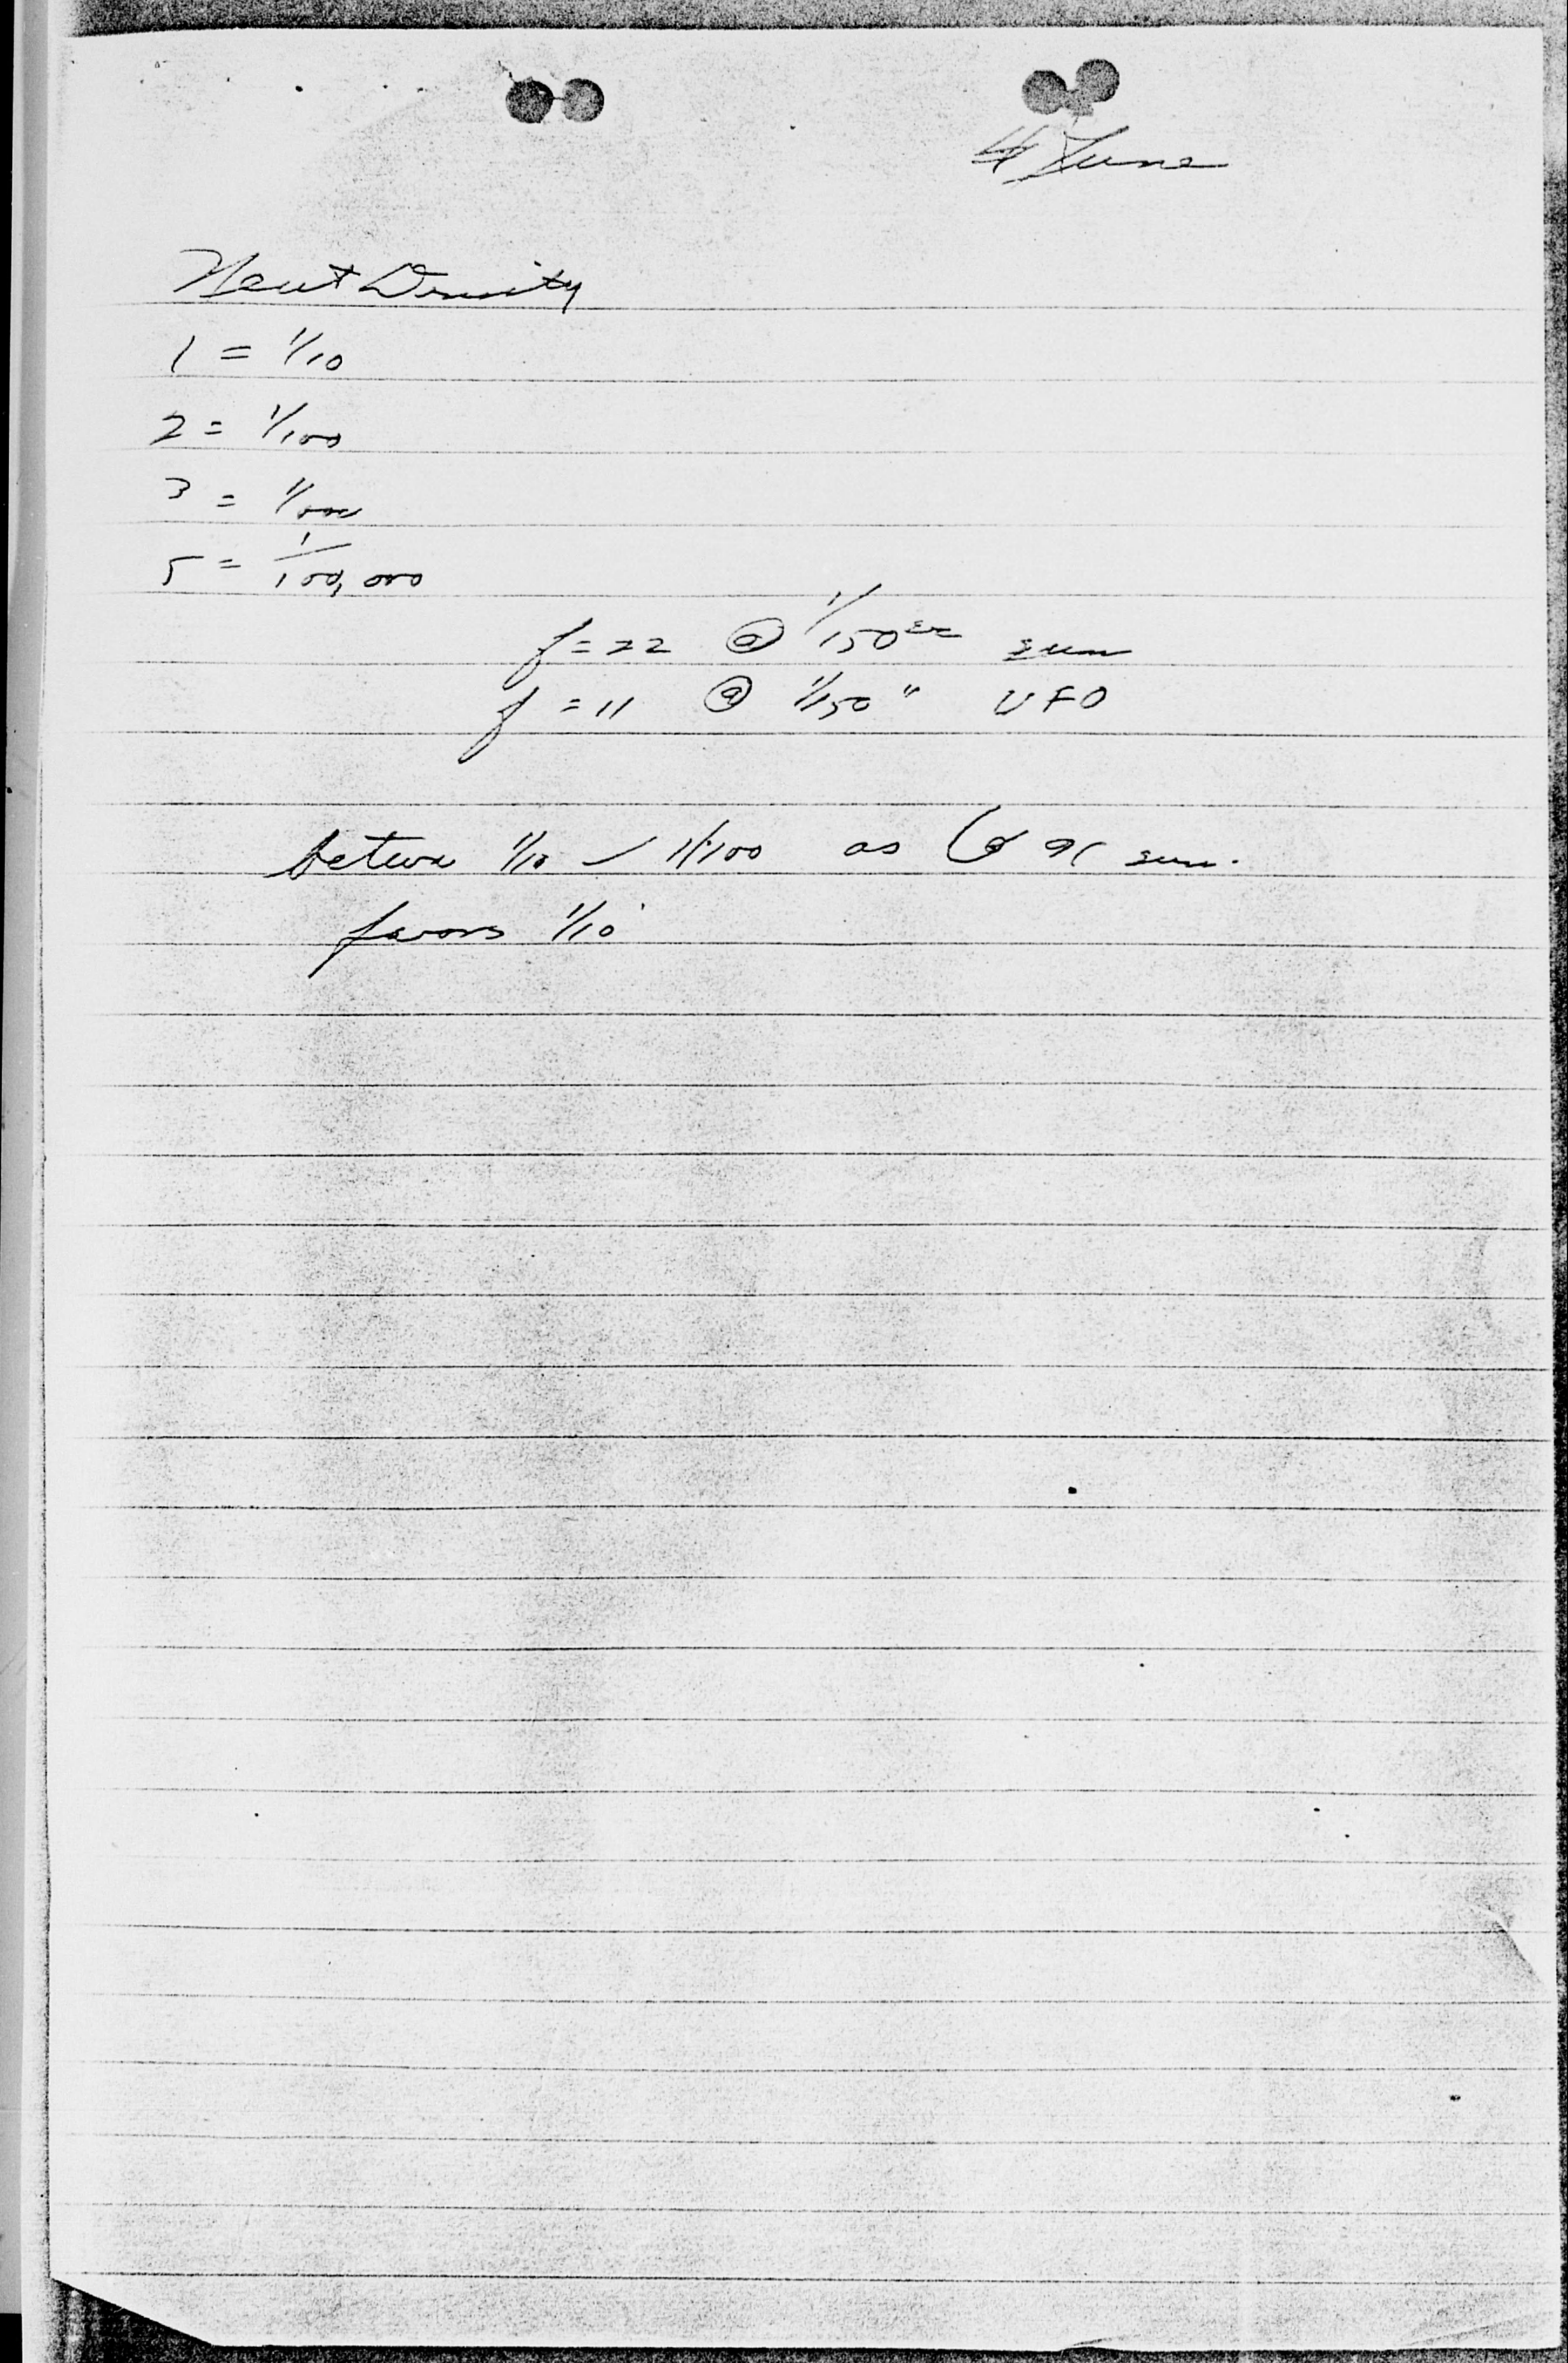 4 June
Neut Density
1 = 1/10
2 = 1/100
3 = 1/1000
5 = 1/100,000
f = 22 @ 1/150 sec sun
f = 11 @ 1/150 " UFO
1/10 1/100 as sun.
favors 1/10